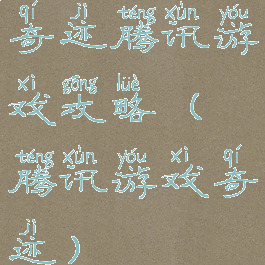 qí jì téng xùn yóu
奇迹腾讯游
xì gōng lüè
戏攻略（
téng xùn yóu xì qí
腾讯游戏奇
jì
迹）